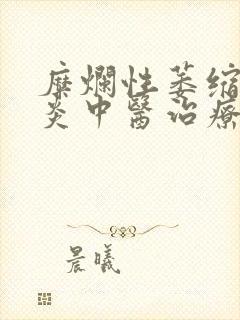 糜爛性萎縮
炎中醫治療
晨曦